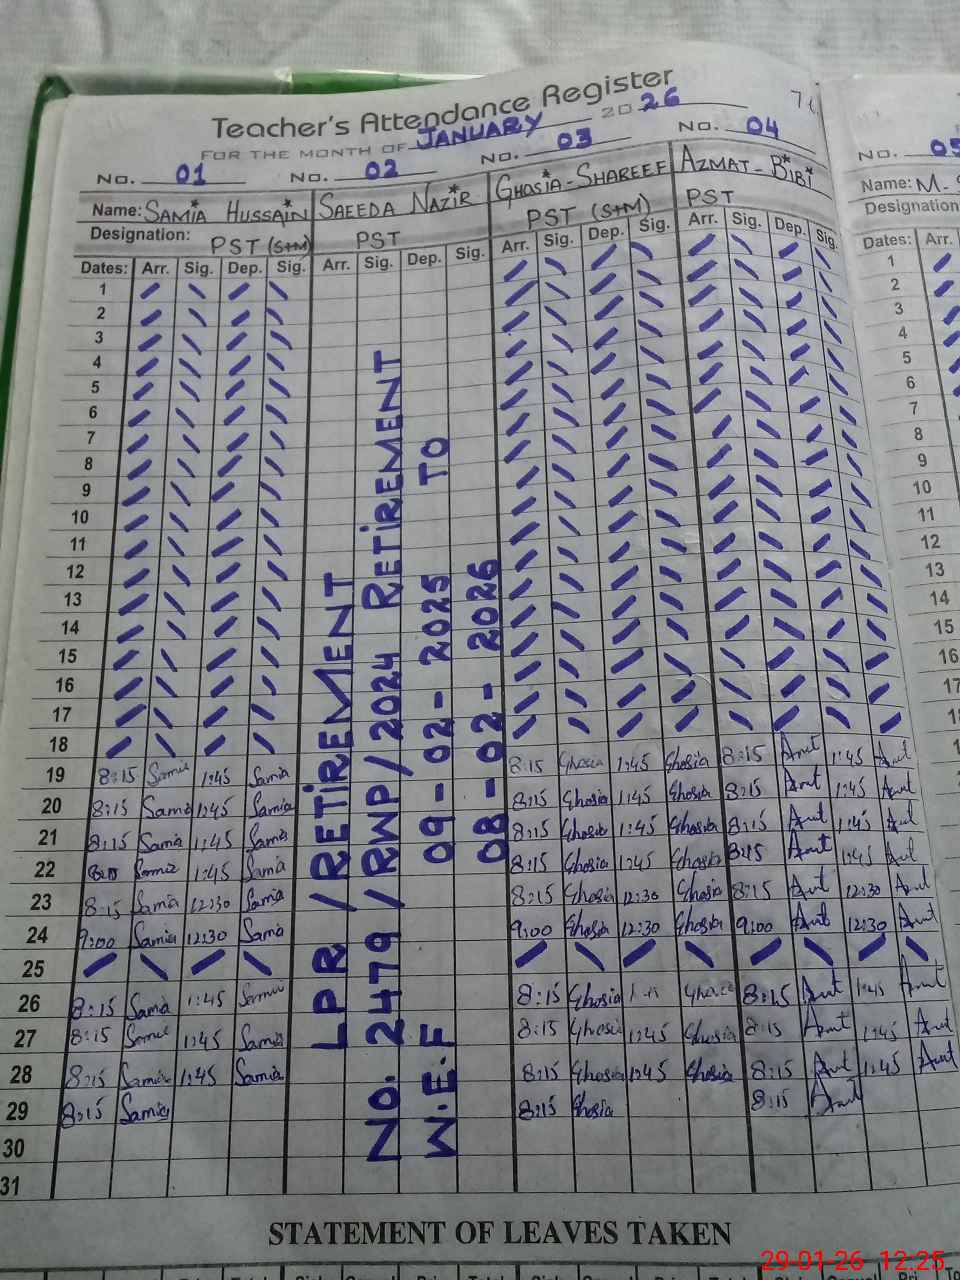 Teacher's Attendance Register
FOR THE MONTH OF JANUARY 2026
No. 01 No. 02 No. 03 No. 04 No. 05
Name: SAMIA HUSSAIN SAEEDA NAZIR GHOSIA-SHAREEF AZMAT-BIBI Name: M.
Designation: PST (S+M) PST PST (S+M) PST Designation
Dates: Arr. Sig. Dep. Sig. Arr. Sig. Dep. Sig. Arr. Sig. Dep. Sig. Arr. Sig. Dep. Sig. Dates: Arr.
1 1
2 2
3 3
4 4
5 5
6 6
7 7
8 8
9 9
10 10
11 11
12 12
13 13
14 14
15 15
16 16
17 17
18
19 8:15 Samia 1:45 Samia 8:15 Ghosia 1:45 Ghosia 8:15 1:45
20 8:15 Samia 1:45 Samia 8:15 Ghosia 1:45 Ghosia 8:15 1:45
21 8:15 Samia 1:45 Samia 8:15 Ghosia 1:45 Ghosia 8:15 1:45
22 Samia 1:45 Samia 8:15 Ghosia 1:45 Ghosia 8:15 1:45
23 8:15 Samia 12:30 Samia 8:15 Ghosia 12:30 Ghosia 8:15 12:30
24 9:00 Samia 12:30 Samia 9:00 Ghosia 12:30 Ghosia 9:00 12:30
25
26 8:15 Samia 1:45 Samia 8:15 Ghosia Ghosia 8:15 1:45
27 8:15 Samia 1:45 Samia 8:15 Ghosia 12:45 Ghosia 8:15 1:45
28 8:15 Samia 1:45 Samia 8:15 Ghosia 1:45 Ghosia 8:15 1:45
29 8:15 Samia 8:15 Ghosia 8:15
30
31
LPR / RETIREMENT
NO. 2479 / RWP / 2024 RETIREMENT
W.E.F 09-02-2025 TO
08-02-2026
STATEMENT OF LEAVES TAKEN
29-01-26 12:25